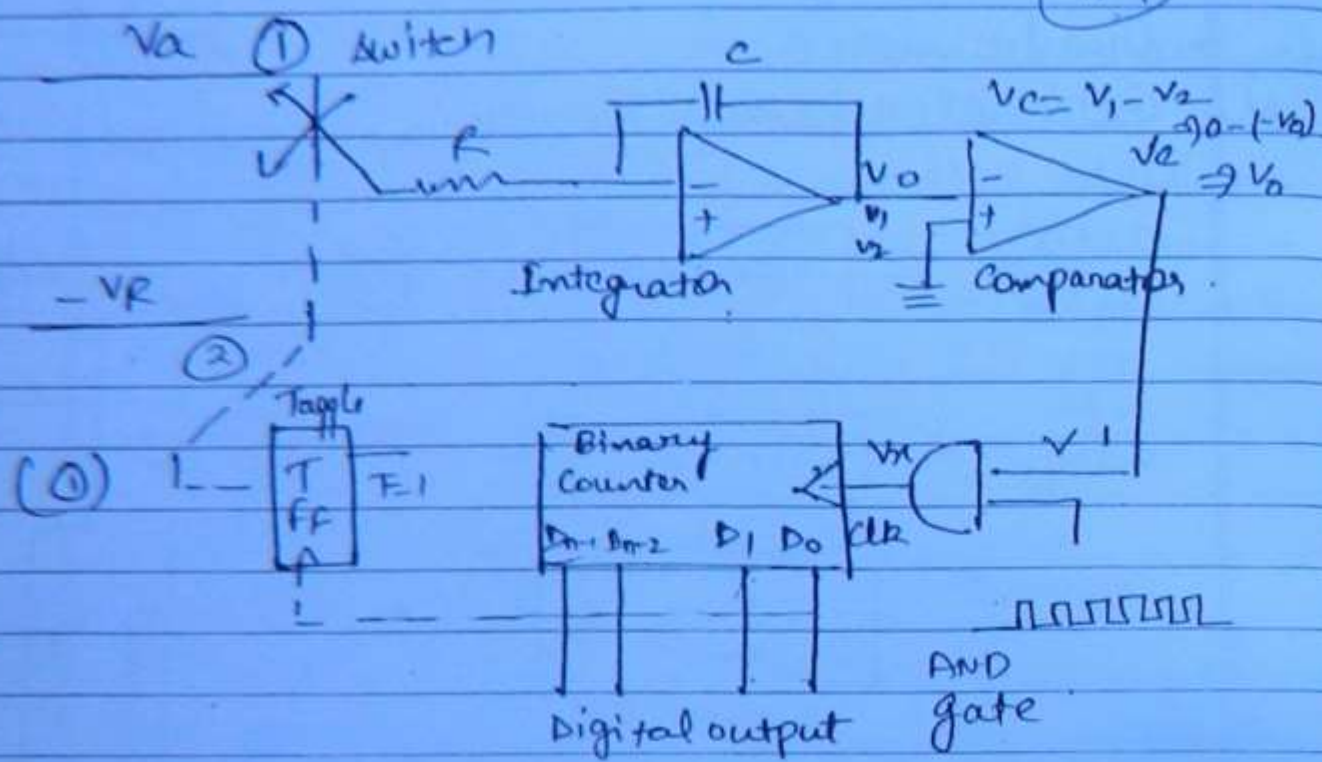 Va ① switch
C
Vc = V1 - V2
⇒ 0 - (-Va)
Vc ⇒ V0
R
V0
-
+
V1
V2
-
+
Integrator
Comparator.
-VR
②
Taggle
(0)
T
FF
T=1
Binary
Counter
Dn-1 Dn-2 D1 D0
Clk
1
AND
gate
Digital output